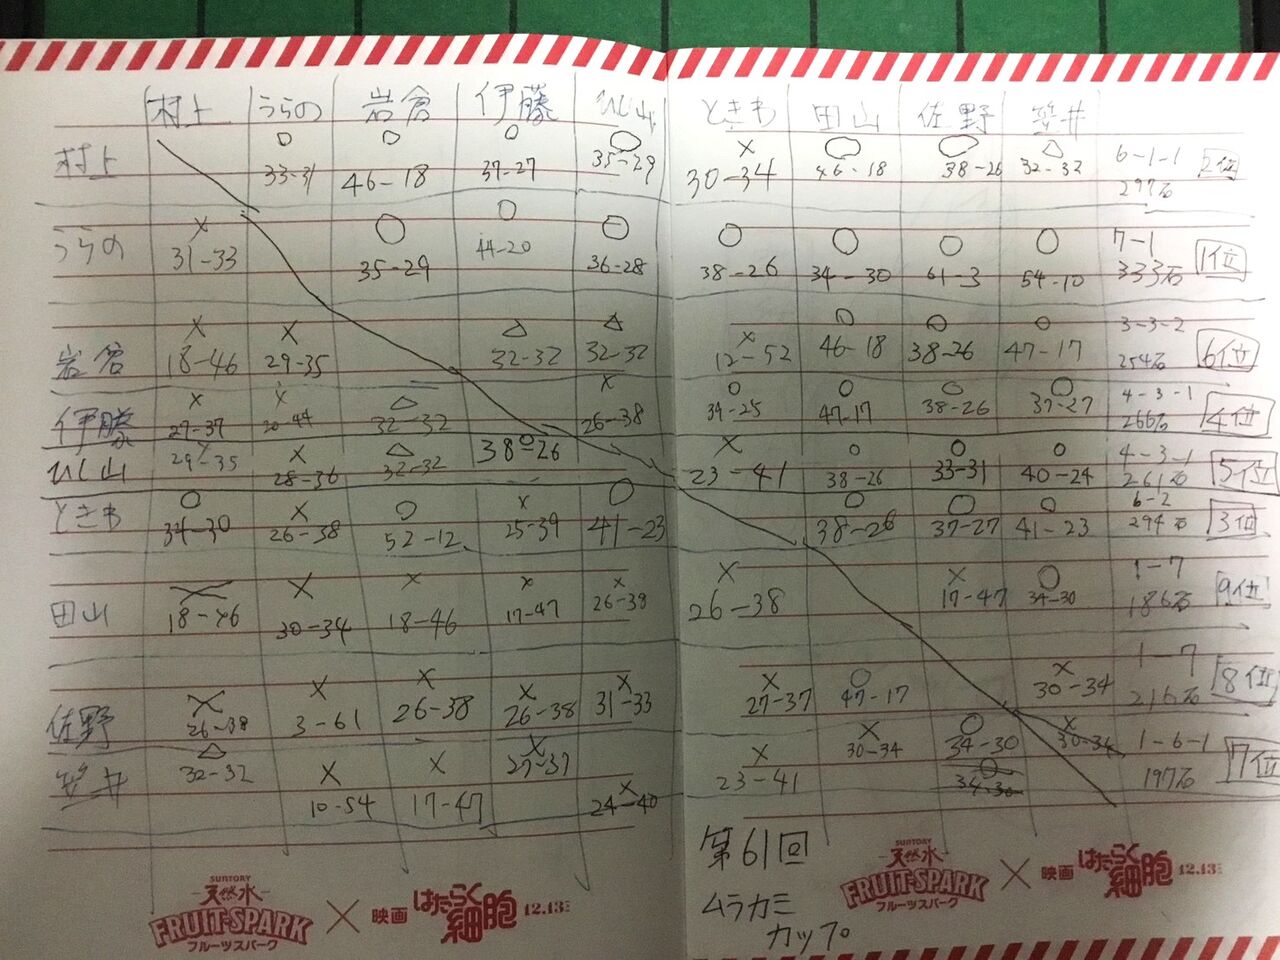 村上 うらの 岩倉 伊藤 ひじ山 ときわ 田山 佐野 笠井
村上 ○ 33-31 ○ 46-18 ○ 37-27 ○ 35-29 × 30-34 ○ 46-18 ○ 38-26 △ 32-32 6-1-1 297石 2位
うらの × 31-33 ○ 35-29 ○ 44-20 ○ 36-28 ○ 38-26 ○ 34-30 ○ 61-3 ○ 54-10 7-1 333石 1位
岩倉 × 18-46 × 29-35 △ 32-32 △ 32-32 × 12-52 ○ 46-18 ○ 38-26 ○ 47-17 3-3-2 254石 6位
伊藤 × 27-37 × 20-44 △ 32-32 × 26-38 ○ 39-25 ○ 47-17 ○ 38-26 ○ 37-27 4-3-1 266石 4位
ひじ山 × 29-35 × 28-36 △ 32-32 ○ 38-26 × 23-41 ○ 38-26 ○ 33-31 ○ 40-24 4-3-1 261石 5位
ときわ ○ 34-30 × 26-38 ○ 52-12 × 25-39 ○ 41-23 ○ 38-26 ○ 37-27 ○ 41-23 6-2 294石 3位
田山 × 18-46 × 30-34 × 18-46 × 17-47 × 26-38 × 26-38 × 17-47 ○ 34-30 1-7 186石 9位
佐野 × 26-38 × 3-61 × 26-38 × 26-38 × 31-33 × 27-37 ○ 47-17 × 30-34 1-7 216石 8位
笠井 △ 32-32 × 10-54 × 17-47 × 27-37 × 24-40 × 23-41 × 30-34 ○ 34-30 × 30-34 1-6-1 197石 7位
34-30
第61回
ムラカミ
カップ
SUNTORY
天然水
FRUIT-SPARK
フルーツスパーク
×
映画
はたらく
細胞
12.13
SUNTORY
天然水
FRUIT-SPARK
フルーツスパーク
×
映画
はたらく
細胞
12.13